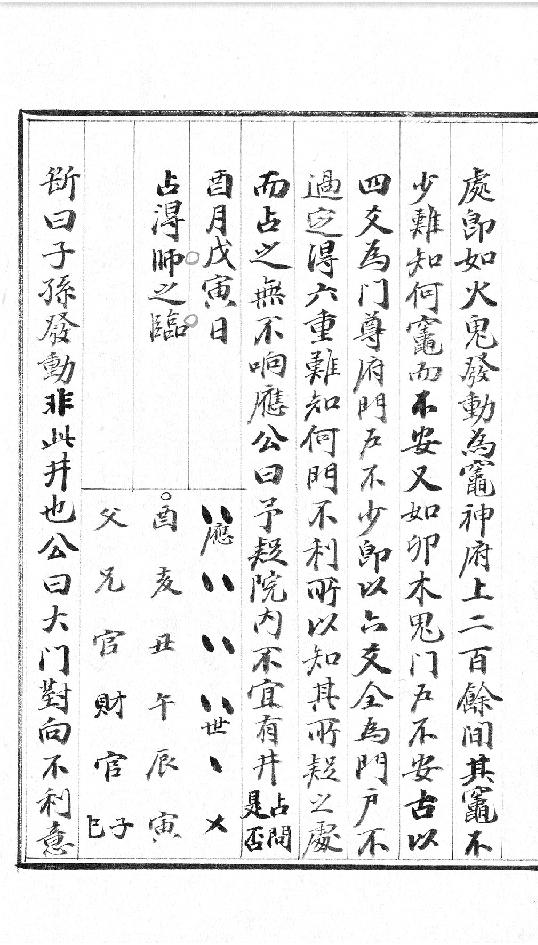 處即如火鬼發動為竈神府上二百餘間其竈不
少難知何竈而不安又如卯木鬼門戶不安古以
四爻為門尊府門戶不少即以六爻全為門戶不
過定得六重難知何門不利所以知其所疑之處
而占之無不响應公曰予疑院內不宜有井占問是否
酉月戊寅日
占得師之臨
應 世
酉亥丑午辰寅
父兄官財官子巳
斷曰子孫發動非此井也公曰大门對向不利意